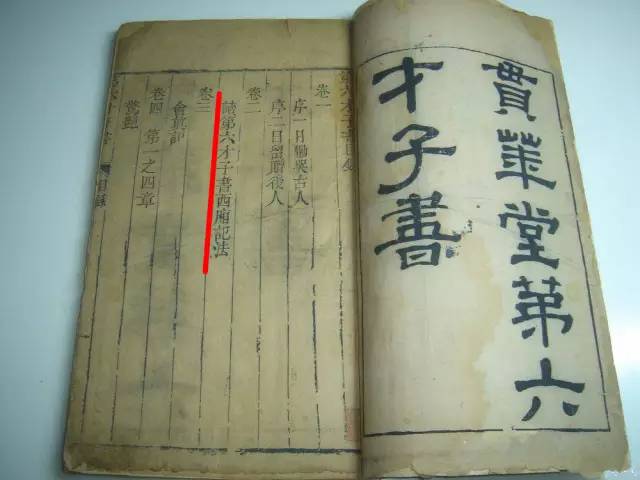 貫華堂第六
才子書
第六才子書目錄
卷一
序一曰慟哭古人
序二曰留贈後人
卷二
讀第六才子書西廂記法
卷三
會真記
卷四 第一之四章
驚艷
目錄